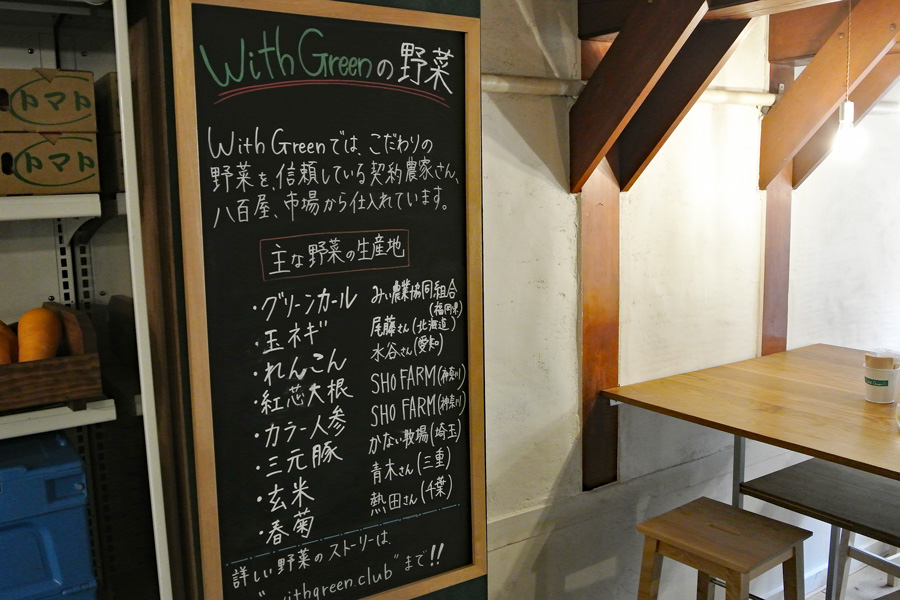 With Greenの野菜
With Greenでは、こだわりの
野菜を、信頼している契約農家さん、
八百屋、市場から仕入れています。
主な野菜の生産地
・グリーンカール みい農業協同組合(福岡県)
・玉ネギ 尾藤さん(北海道)
・れんこん 水谷さん(愛知)
・紅芯大根 SHO FARM(神奈川)
・カラー人参 SHO FARM(神奈川)
・三元豚 かない牧場(埼玉)
・玄米 青木さん(三重)
・春菊 熱田さん(千葉)
詳しい野菜のストーリーは、
"withgreen.club"まで!!
トマト
トマト